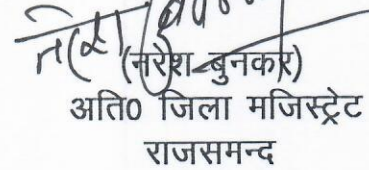 (नरेश बुनकर)
अति0 जिला मजिस्ट्रेट
राजसमन्द